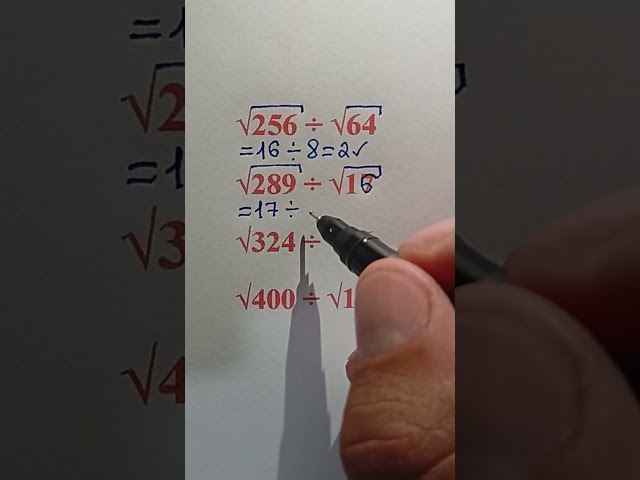 √256 ÷ √64
=16 ÷ 8 = 2✓
√289 ÷ √16
=17 ÷
√324 ÷
√400 ÷ √1